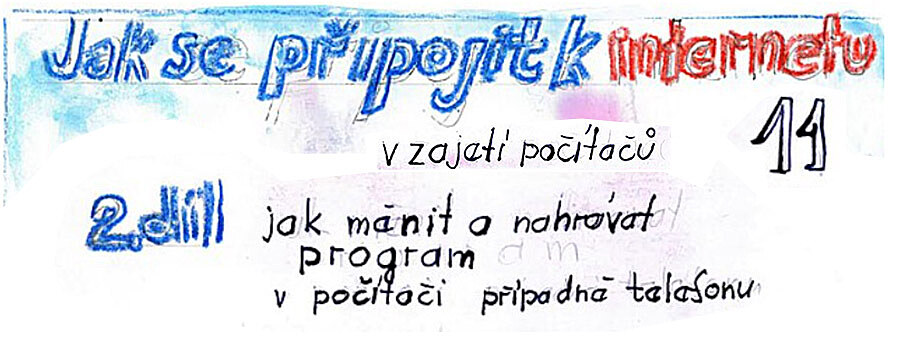 Jak se připojit k internetu
11
v zajetí počítačů
2. díl
jak měnit a nahrávat
program
v počítači případně telefonu